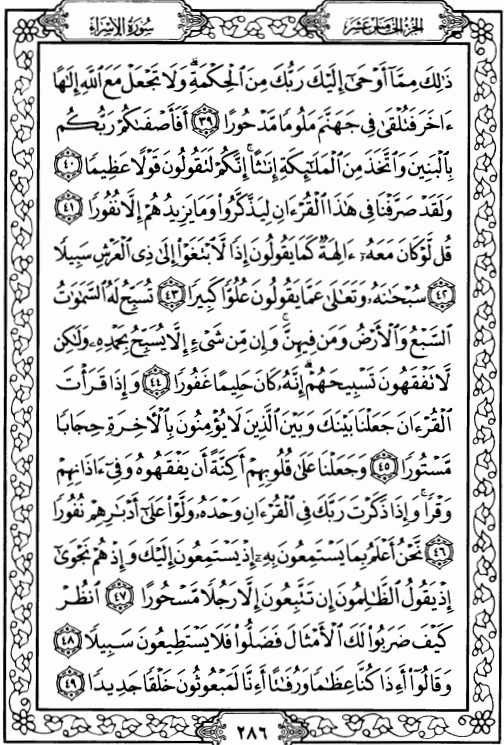 الجزء الخامس عشر
سورة الإسراء
ذَٰلِكَ مِمَّآ أَوْحَىٰٓ إِلَيْكَ رَبُّكَ مِنَ ٱلْحِكْمَةِ ۗ وَلَا تَجْعَلْ مَعَ ٱللَّهِ إِلَٰهًا
ءَاخَرَ فَتُلْقَىٰ فِى جَهَنَّمَ مَلُومًا مَّدْحُورًا ٣٩ أَفَأَصْفَىٰكُمْ رَبُّكُم
بِٱلْبَنِينَ وَٱتَّخَذَ مِنَ ٱلْمَلَٰٓئِكَةِ إِنَٰثًا ۚ إِنَّكُمْ لَتَقُولُونَ قَوْلًا عَظِيمًا ٤٠
وَلَقَدْ صَرَّفْنَا فِى هَٰذَا ٱلْقُرْءَانِ لِيَذَّكَّرُوا۟ وَمَا يَزِيدُهُمْ إِلَّا نُفُورًا ٤١
قُل لَّوْ كَانَ مَعَهُۥٓ ءَالِهَةٌ كَمَا يَقُولُونَ إِذًا لَّٱبْتَغَوْا۟ إِلَىٰ ذِى ٱلْعَرْشِ سَبِيلًا
٤٢ سُبْحَٰنَهُۥ وَتَعَٰلَىٰ عَمَّا يَقُولُونَ عُلُوًّا كَبِيرًا ٤٣ تُسَبِّحُ لَهُ ٱلسَّمَٰوَٰتُ
ٱلسَّبْعُ وَٱلْأَرْضُ وَمَن فِيهِنَّ ۚ وَإِن مِّن شَىْءٍ إِلَّا يُسَبِّحُ بِحَمْدِهِۦ وَلَٰكِن
لَّا تَفْقَهُونَ تَسْبِيحَهُمْ ۗ إِنَّهُۥ كَانَ حَلِيمًا غَفُورًا ٤٤ وَإِذَا قَرَأْتَ
ٱلْقُرْءَانَ جَعَلْنَا بَيْنَكَ وَبَيْنَ ٱلَّذِينَ لَا يُؤْمِنُونَ بِٱلْءَاخِرَةِ حِجَابًا
مَّسْتُورًا ٤٥ وَجَعَلْنَا عَلَىٰ قُلُوبِهِمْ أَكِنَّةً أَن يَفْقَهُوهُ وَفِىٓ ءَاذَانِهِمْ
وَقْرًا ۚ وَإِذَا ذَكَرْتَ رَبَّكَ فِى ٱلْقُرْءَانِ وَحْدَهُۥ وَلَّوْا۟ عَلَىٰٓ أَدْبَٰرِهِمْ نُفُورًا
٤٦ نَّحْنُ أَعْلَمُ بِمَا يَسْتَمِعُونَ بِهِۦٓ إِذْ يَسْتَمِعُونَ إِلَيْكَ وَإِذْ هُمْ نَجْوَىٰٓ
إِذْ يَقُولُ ٱلظَّٰلِمُونَ إِن تَتَّبِعُونَ إِلَّا رَجُلًا مَّسْحُورًا ٤٧ ٱنظُرْ
كَيْفَ ضَرَبُوا۟ لَكَ ٱلْأَمْثَالَ فَضَلُّوا۟ فَلَا يَسْتَطِيعُونَ سَبِيلًا ٤٨
وَقَالُوٓا۟ أَءِذَا كُنَّا عِظَٰمًا وَرُفَٰتًا أَءِنَّا لَمَبْعُوثُونَ خَلْقًا جَدِيدًا ٤٩
٢٨٦